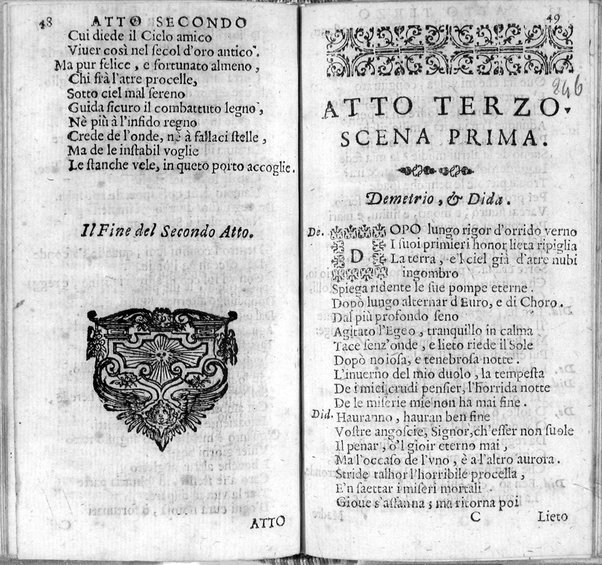 48 ATTO SECONDO
Cui diede il Cielo amico
Viuer così nel secol d'oro antico.
Ma pur felice, e fortunato almeno,
Chi frà l'atre procelle,
Sotto ciel mal sereno
Guida sicuro il combattuto legno,
Nè più à l'infido regno
Crede de l'onde, nè à fallaci stelle,
Ma de le instabil voglie
Le stanche vele, in queto porto accoglie.
Il Fine del Secondo Atto.
ATTO
49
846
ATTO TERZO.
SCENA PRIMA.
Demetrio, & Dida.
De. DOPO lungo rigor d'orrido verno
I suoi primieri honor lieta ripiglia
La terra, e'l ciel già d'atre nubi
ingombro
Spiega ridente le sue pompe eterne.
Dopò lungo alternar d'Euro, e di Choro.
Dal più profondo seno
Agitato l'Egeo, tranquillo in calma
Tace senz'onde, e lieto riede il Sole
Dopò noiosa, e tenebrosa notte.
L'inuerno del mio duolo, la tempesta
De i miei crudi pensier, l'horrida notte
De le miserie mie non ha mai fine.
Did. Hauranno, hauran ben fine
Vostre angoscie, Signor, ch'esser non suole
Il penar, o'l gioir eterno mai,
Ma l'occaso de l'vno, è a l'altro aurora.
Stride talhor l'horribile procella,
E'n saettar i miseri mortali
Gioue s'affanna; ma ritorna poi
C Lieto